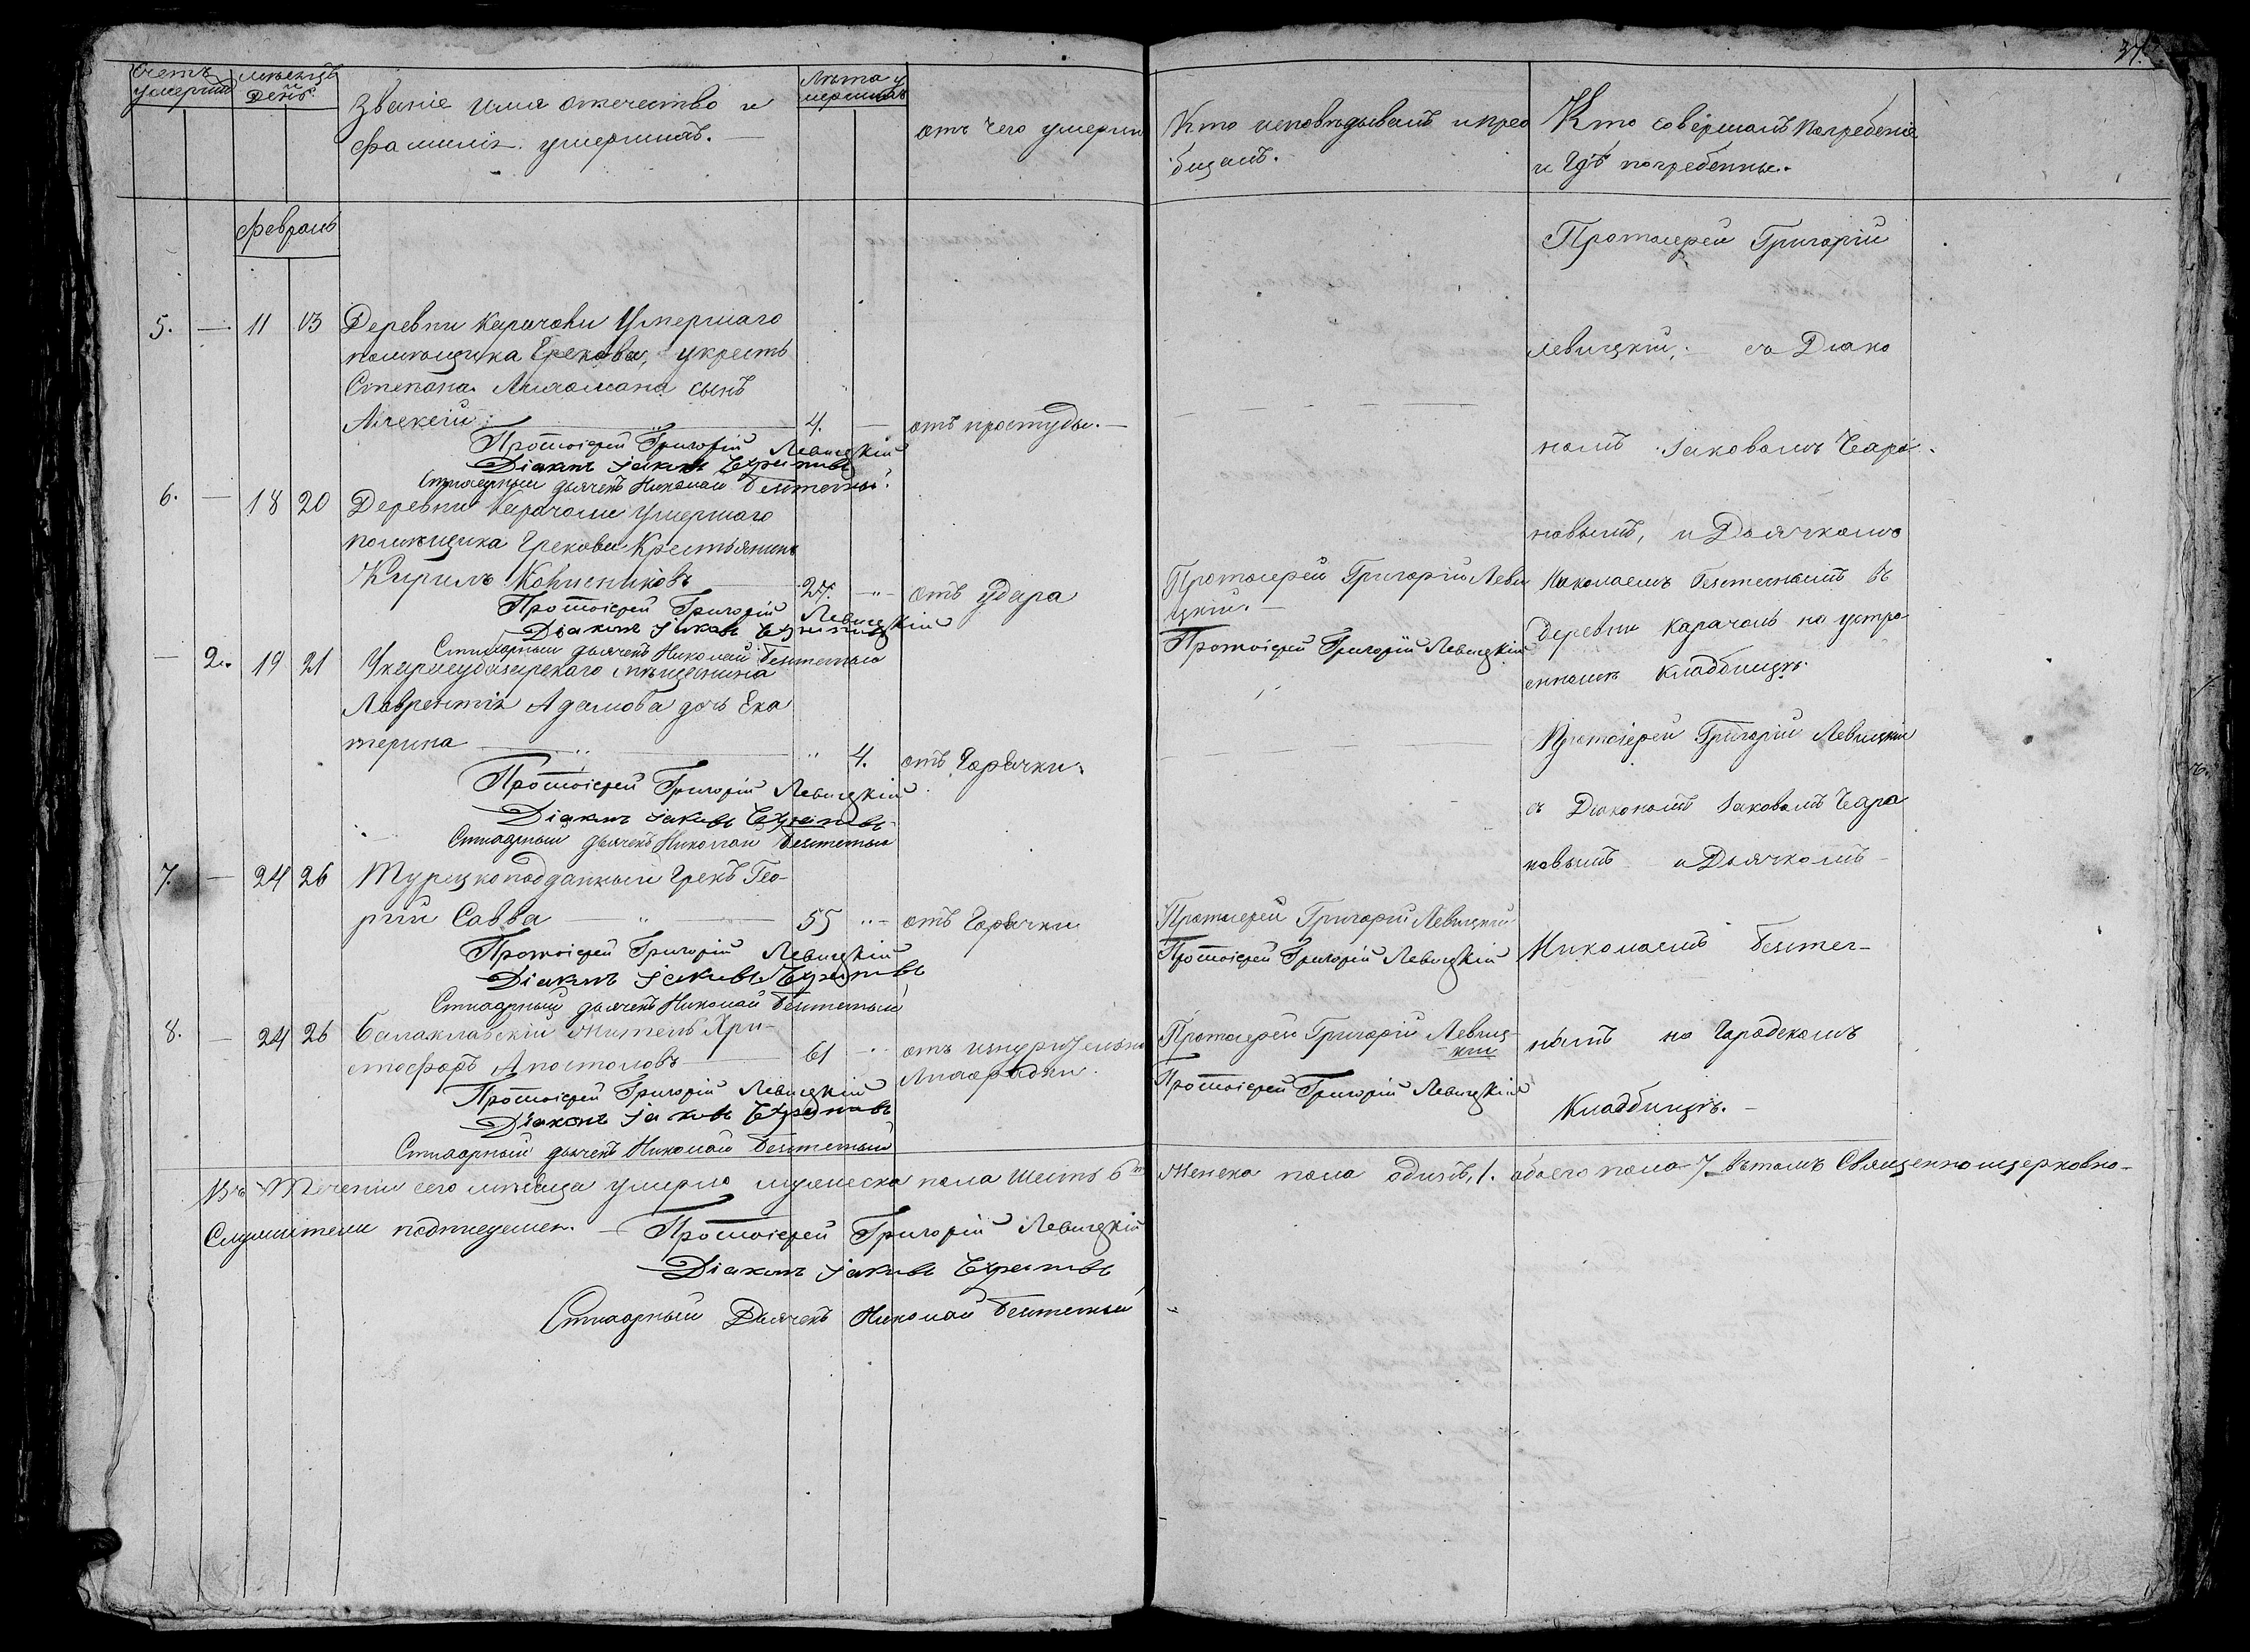 37.
Счетъ умершихъ
мѣсяцъ и день.
Званіе имя отечество и
фамилія умершихъ. —
Лѣта умершихъ
отъ чего умерли
Кто исповѣдывалъ и прео
бщалъ.
Кто совершалъ Погребеніе
и Гдѣ погребенны.
февраль
5. — 11 13 Деревни Карачови Умершаго
помѣщика Грекова, укресть
Степана Атамана сынъ
Алексѣй 4. — отъ простуды. —
Протоіерей Григорій Левицкій
Діаконъ Іаковъ
Стихарный дьячекъ Николай
6. — 18 20 Деревни Карачоли Умершаго
помѣщика Грекова Крестьянинъ
Кирилъ 27. — отъ удара
Протоіерей Григорій Леви
цкій. —
Протоіерей Григорій Левицкій
Діаконъ Іаковъ
Стихарный дьячекъ Николай
Протоіерей Григорій Левицкій
— 2. 19 21 мѣщанина
Лаврентія Адамова дочь Ека
терина — 4. отъ Горячки.
Протоіерей Григорій Левицкій
Діаконъ Іаковъ
Стихарный дьячекъ Николай
7. — 24 26 Турецкоподданный Грекъ Гео-
ргій Савва — 55 — отъ Горячки
Протоіерей Григорій Левицкій
Протоіерей Григорій Левицкій
Діаконъ Іаковъ
Стихарный дьячекъ Николай
Протоіерей Григорій Левицкій
8. — 24 26 Балаклавскій Житель Хри-
стофоръ Апостоловъ 61 — отъ изнурительной
Лихорадки.
Протоіерей Григорій Левиц-
кій
Протоіерей Григорій Левицкій
Діаконъ Іаковъ
Стихарный дьячекъ Николай
Протоіерей Григорій Левицкій
Протоіерей Григорій
Левицкій, — съ Діако
номъ Іаковомъ
новымъ, и Дьячкомъ
Николаемъ въ
деревни Карачоль на устро
енномъ кладбищѣ.
Протоіерей Григорій Левицкій
съ Діакономъ Іаковомъ
новымъ и Дьячкомъ
Николаемъ
нымъ на Городскомъ
Кладбищѣ. —
Въ Теченіи сего мѣсяца умерло мужеска пола шесть 6 женска пола одинъ, 1. обоего пола 7. въ томъ Священноицерковно-
Служители подписуемся. — Протоіерей Григорій Левицкій
Діаконъ Іаковъ
Стихарный Дьячекъ Николай